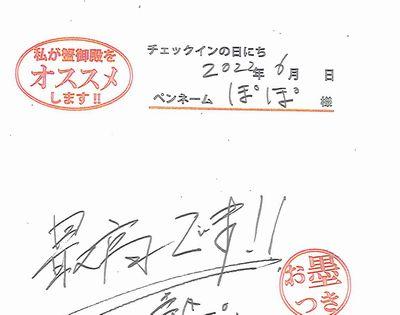 私が蟹御殿を
オススメ
します!!
チェックインの日にち
2022年6月 日
ペンネーム ぽぽ 様
最高です!!
お墨
つき